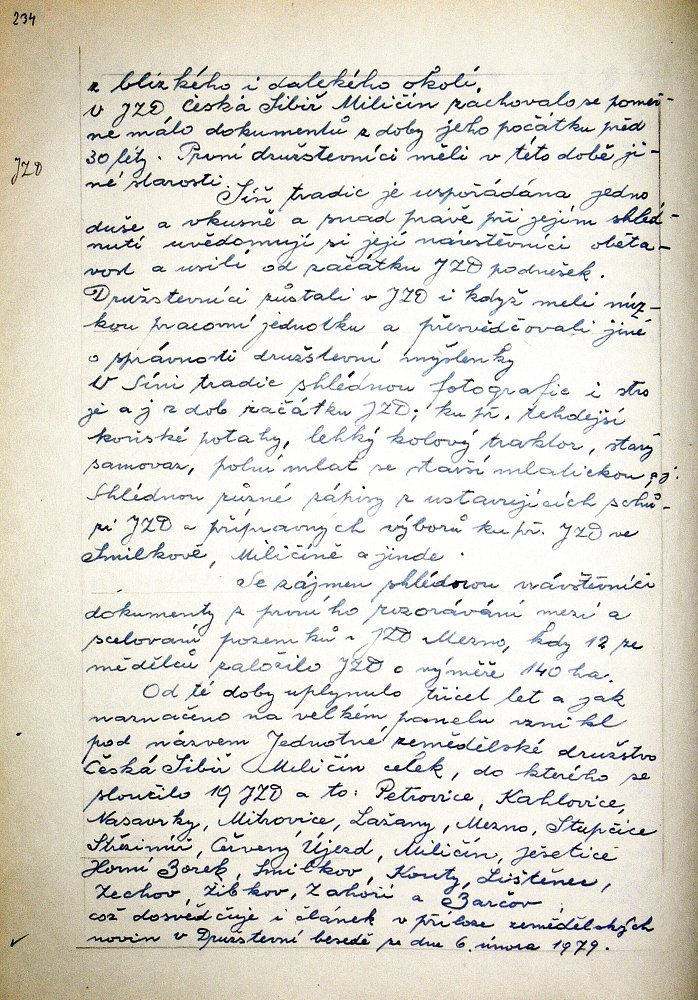 234
z blízkého i dalekého okolí.
V JZD Česká Sibiř Miličín zachovalo se poměr-
ně málo dokumentů z doby jeho počátku před
JZD
30 léty. První družstevníci měli v této době ji-
né starosti.
Síň tradic je uspořádána jedno
duše a vkusně a snad právě při jejím shléd-
nutí uvědomují si její návštěvníci oběta-
vost a usilí od začátku JZD podnešek.
Družstevníci zůstali v JZD i když meli níz-
kou pracovní jednotku a přesvědčovali jiné
o správnosti družstevní myšlenky
V Síni tradic shlédnou fotografie i stro
je a j z dob začátku JZD; ku př. tehdejší
koňské potahy, lehký kolový traktor, starý
samovaz, polní mlat se starší mlatičkou a j.
Shlédnou různé zápisy z ustavujících schů-
zí JZD a přípravných výborů ku př. JZD ve
Smilkově, Miličíně a jinde.
Se zájmem shlédnou návštěvníci
dokumenty z prvního rozorávání mezí a
scelovaní pozemků v JZD Mezno, kdy 12 ze
mědělců založilo JZD o výměře 140 ha.
Od té doby uplynulo třicet let a jak
naznačeno na velkém panelu vznikl
pod názvem Jednotné zemědělské družstvo
Česká Sibiř Miličín celek, do kterého se
sloučilo 19 JZD a to: Petrovice, Kahlovice,
Nasavrky, Mitrovice, Lažany, Mezno, Stupčice
Střezimíř, Červený Újezd, Miličín, Ješetice
Horní Borek, Smilkov, Kouty, Líštěnec,
Zechov, Žibkov, Zahoří a Barčov
což dosvědčuje i článek v příloze zemědělských
novin v Družstevní besedě ze dne 6. února 1979.